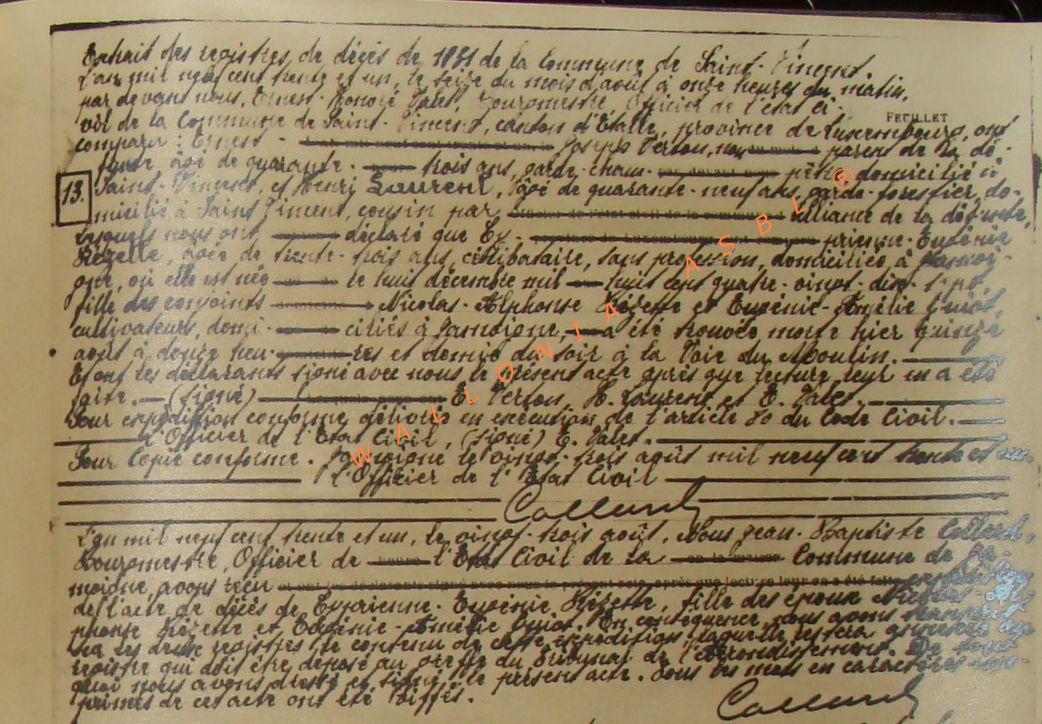 Extrait des registres de décès de 1931 de la Commune de Saint-Vincent.
L'an mil neuf cent trente et un, le seize du mois d'août à onze heures du matin,
par devant nous, Ernest-Honoré Valet, Bourgmestre, Officier de l'état ci-
FEUILLET
vil de la Commune de Saint-Vincent, canton d'Etalle, province de Luxembourg, ont
comparu: Ernest - Joseph Verton, non parent de la dé-
funte, âgé de quarante- trois ans, garde-cham- pêtre domicilié à
13.
Saint-Vincent, et Henri Laurent, âgé de quarante-neuf ans, garde-forestier, do-
micilié à Saint-Vincent, cousin par alliance de la défunte,
lesquels nous ont déclaré que Cy- prienne-Eugénie
Rézette, âgée de trente-trois ans, célibataire, sans profession, domiciliée à Jamoi-
gne, où elle est née le huit décembre mil huit cent quatre-vingt-dix-sept,
fille des conjoints Nicolas-Alphonse Rézette et Eugénie-Amélie Guiot,
cultivateurs, domi- ciliés à Jamoigne, a été trouvée morte hier quinze
août à douze heu- res et demie du soir à la Voie du Moulin.
Et ont les déclarants signé avec nous le présent acte après que lecture leur en a été
faite. (Signé) E. Verton, H. Laurent et E. Valet.
Pour expédition conforme délivrée en exécution de l'article 80 du Code Civil.
L'Officier de l'Etat Civil, (signé) E. Valet.
Pour copie conforme. Jamoigne le vingt-trois août mil neuf cent trente et un.
L'Officier de l'Etat Civil
Collard
L'an mil neuf cent trente et un, le vingt-trois août, Nous Jean-Baptiste Collard,
Bourgmestre, Officier de l'Etat Civil de la Commune de Ja-
moigne, avons reçu
de l'acte de décès de Cyprienne-Eugénie Rézette, fille des époux Nicolas-Al-
phonse Rézette et Eugénie-Amélie Guiot. En conséquence nous avons transcrit
sur les deux registres le contenu de cette expédition, laquelle restera annexée au
registre qui doit être déposé au greffe du Tribunal de l'Arrondissement. De tout
quoi nous avons dressé et signé le présent acte. Tous les mots en caractères im-
primés de cet acte ont été biffés.
Collard
WALLONIA ASBL ®